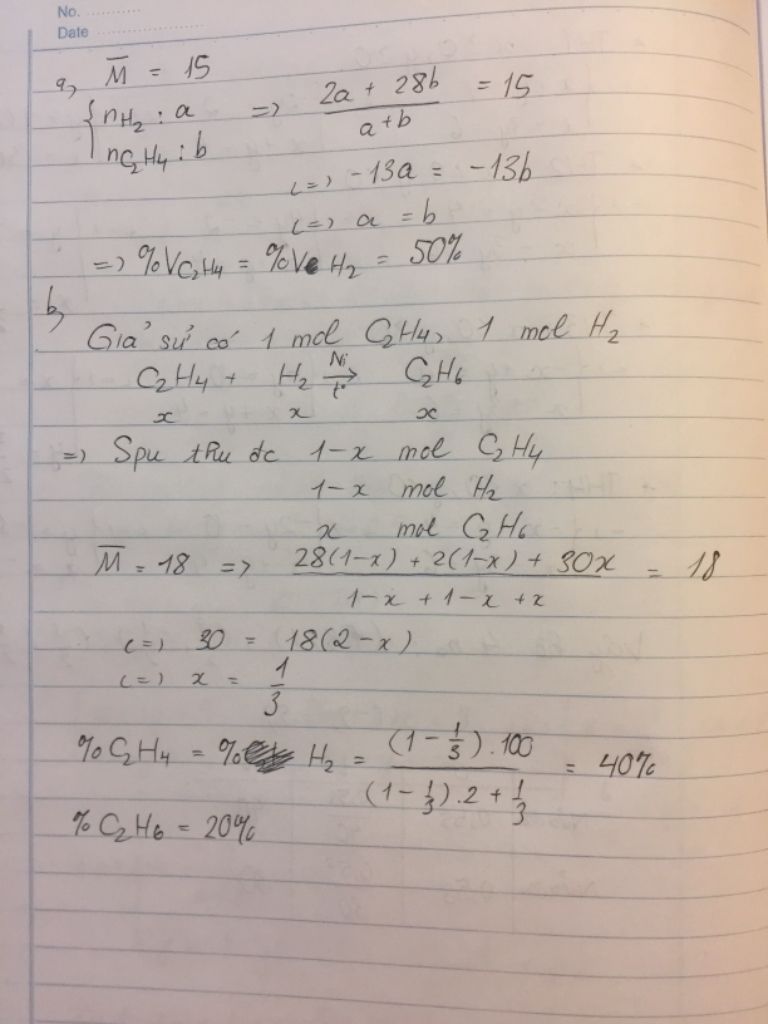 No. ............
Date ........................
a, M̅ = 15
{ nH₂ : a => (2a + 28b)/(a+b) = 15
nC₂H₄ : b
<=> -13a = -13b
<=> a = b
=> %VC₂H₄ = %V H₂ = 50%
b,
Giả sử có 1 mol C₂H₄, 1 mol H₂
C₂H₄ + H₂ →(Ni, t°) C₂H₆
x x x
=> Spu thu đc 1-x mol C₂H₄
1-x mol H₂
x mol C₂H₆
M̅ = 18 => (28(1-x) + 2(1-x) + 30x)/(1-x + 1-x + x) = 18
<=> 30 = 18(2-x)
<=> x = 1/3
%C₂H₄ = % H₂ = ((1 - 1/3).100)/((1 - 1/3).2 + 1/3) = 40%
%C₂H₆ = 20%